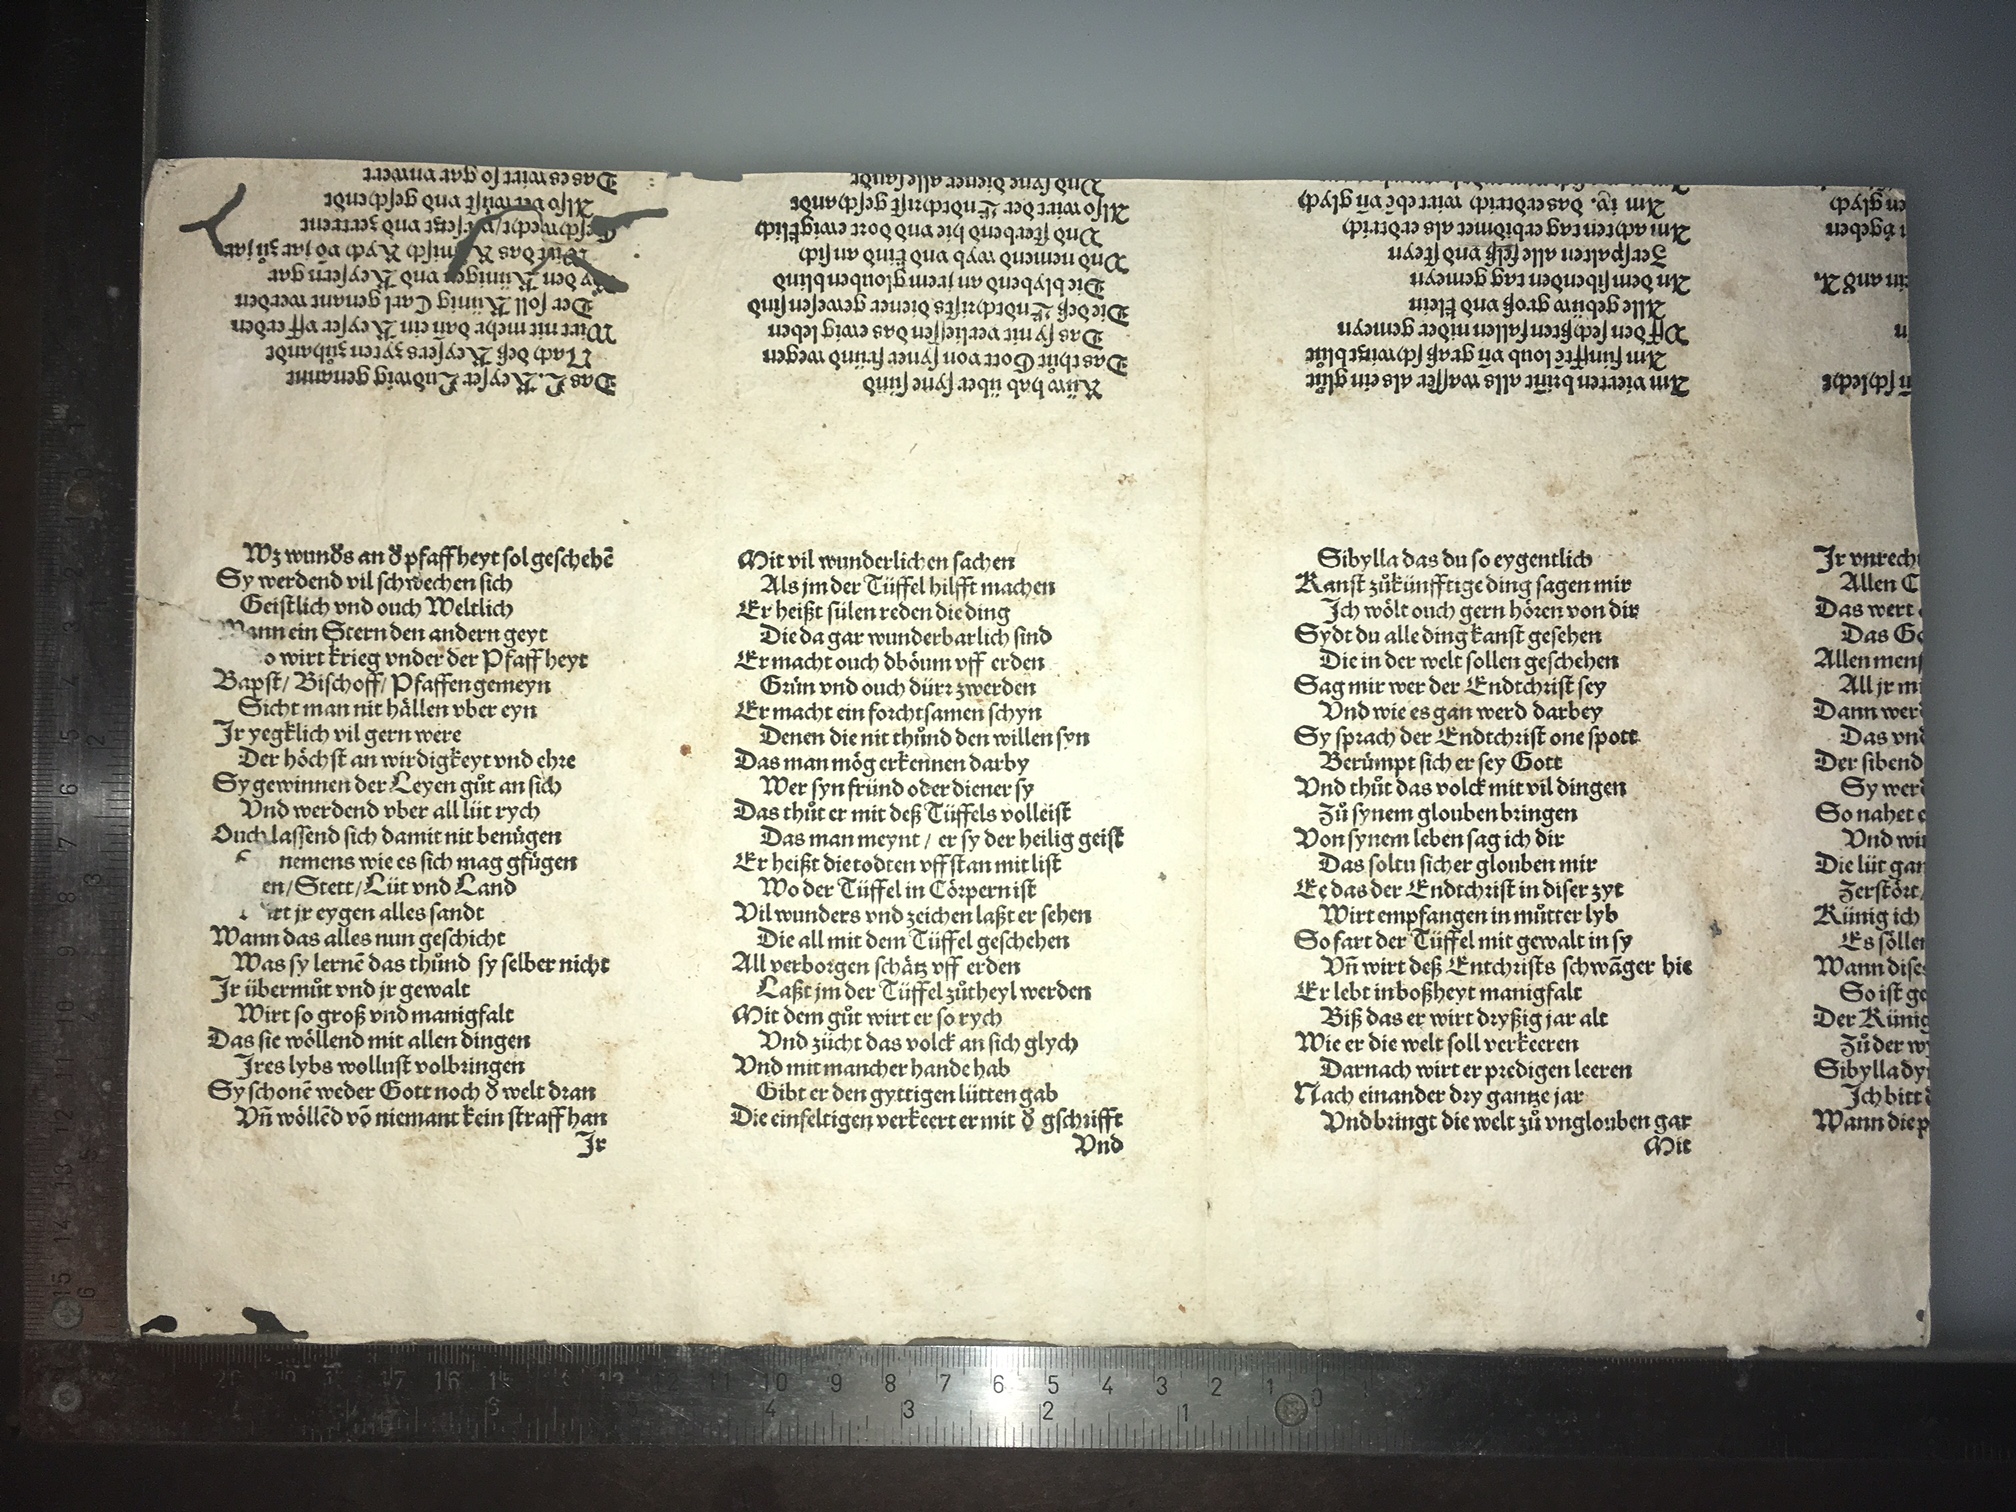 Wz wunds an d pfaffheyt sol geschehē
Sy werdend vil schwechen sich
Geistlich vnd ouch Weltlich
Wann ein Stern den andern geyt
o wirt krieg vnder der Pfaffheyt
Bapst/ Bischoff/ Pfaffen gemeyn
Sicht man nit hällen vber eyn
Jr yegklich vil gern were
Der höchst an wirdigkeyt vnd ehre
Sy gewinnen der Leyen gůt an sich
Vnd werdend vber all lüt rych
Ouch lassend sich damit nit benügen
nemens wie es sich mag gfügen
en/ Stett/ Lüt vnd Land
rt jr eygen alles sandt
Wann das alles nun geschicht
Was sy lernē das thůnd sy selber nicht
Jr übermůt vnd jr gewalt
Wirt so groß vnd manigfalt
Das sie wöllend mit allen dingen
Jres lybs wollust volbringen
Sy schonē weder Gott noch d welt dran
Vñ wöllēd vō niemant kein straff han
Jr
Mit vil wunderlichen sachen
Als jm der Tüffel hilfft machen
Er heißt sülen reden die ding
Die da gar wunderbarlich sind
Er macht ouch dböum vff erden
Grün vnd ouch dürr zwerden
Er macht ein forchtsamen schyn
Denen die nit thůnd den willen syn
Das man mög erkennen darby
Wer syn fründ oder diener sy
Das thůt er mit deß Tüffels volleist
Das man meynt / er sy der heilig geist
Er heißt die todten vffstan mit list
Wo der Tüffel in Cörpern ist
Vil wunders vnd zeichen laßt er sehen
Die all mit dem Tüffel geschehen
All verborgen schätz vff erden
Laßt jm der Tüffel zůtheyl werden
Mit dem gůt wirt er so rych
Vnd zücht das volck an sich glych
Vnd mit mancher hande hab
Gibt er den gyttigen lütten gab
Die einfeltigen verkeert er mit d gschrifft
Vnd
Sibylla das du so eygentlich
Kanst zůkünfftige ding sagen mir
Jch wölt ouch gern hören von dir
Sydt du alle ding kanst gesehen
Die in der welt sollen geschehen
Sag mir wer der Endtchrist sey
Vnd wie es gan werd darbey
Sy sprach der Endtchrist one spott
Berümpt sich er sey Gott
Vnd thůt das volck mit vil dingen
Zů synem glouben bringen
Von synem leben sag ich dir
Das soltu sicher glouben mir
Ee das der Endtchrist in diser zyt
Wirt empfangen in můtter lyb
So fart der Tüffel mit gewalt in sy
Vñ wirt deß Entchrists schwāger hie
Er lebt in boßheyt manigfalt
Biß das er wirt dryßig jar alt
Wie er die welt soll verkeeren
Darnach wirt er predigen leeren
Nach einander dry gantze jar
Vnd bringt die welt zů vnglouben gar
Mit
Jr vnrech
Allen
Das wert
Das
Allen men
All jr
Dann
Das
Der sibend
Sy
So nahet
Vnd
Die lüt
Zerstört
Künig ich
Es
Wann
So ist
Der Künig
Zů der
Sibylla
Jch bitt
Wann die
schlecht
in and
geben
glych
Am vierten brint alls wasser als ein glůt
Am fünfften loub vñ graß schwitzt blůt
Vff den sechßten fallen nider gemeyn
Alle gebüw groß vnd klein
An dem sibenden tag gemeyn
Zerspalten alle felß vnd steyn
Am achten tag erbidmet als erdtrich
Am ix. das erdtrich wirt ebē vñ glych
Rüw hab über syne sünd
Das thůt Gott von syner fründ wegen
Das sy nit verlieſsen das ewig leben
Die deß Endtchrists diener gewesen sind
Die blybend an jrem glouben blind
Vnd nemend wyb vnd kind an sich
Vnd sterbend hie vnd dort ewigklich
Also wirt der Endtchrist geschandt
Vnd syne diener alle sandt
Das L. Keyser Ludwig genannt
Nach deß Keysers zyten zůhandt
Wirt nit mehr dan ein Keyser vff erden
Der soll Künig Carl genant werden
den Künigen vnd Keysern gar
Wirt das Rych vō jar zů jar
Geschwecht/ versetzt vnd zertrent
Also verwůst vnd geschendt
Das es wirt so gar vnwert